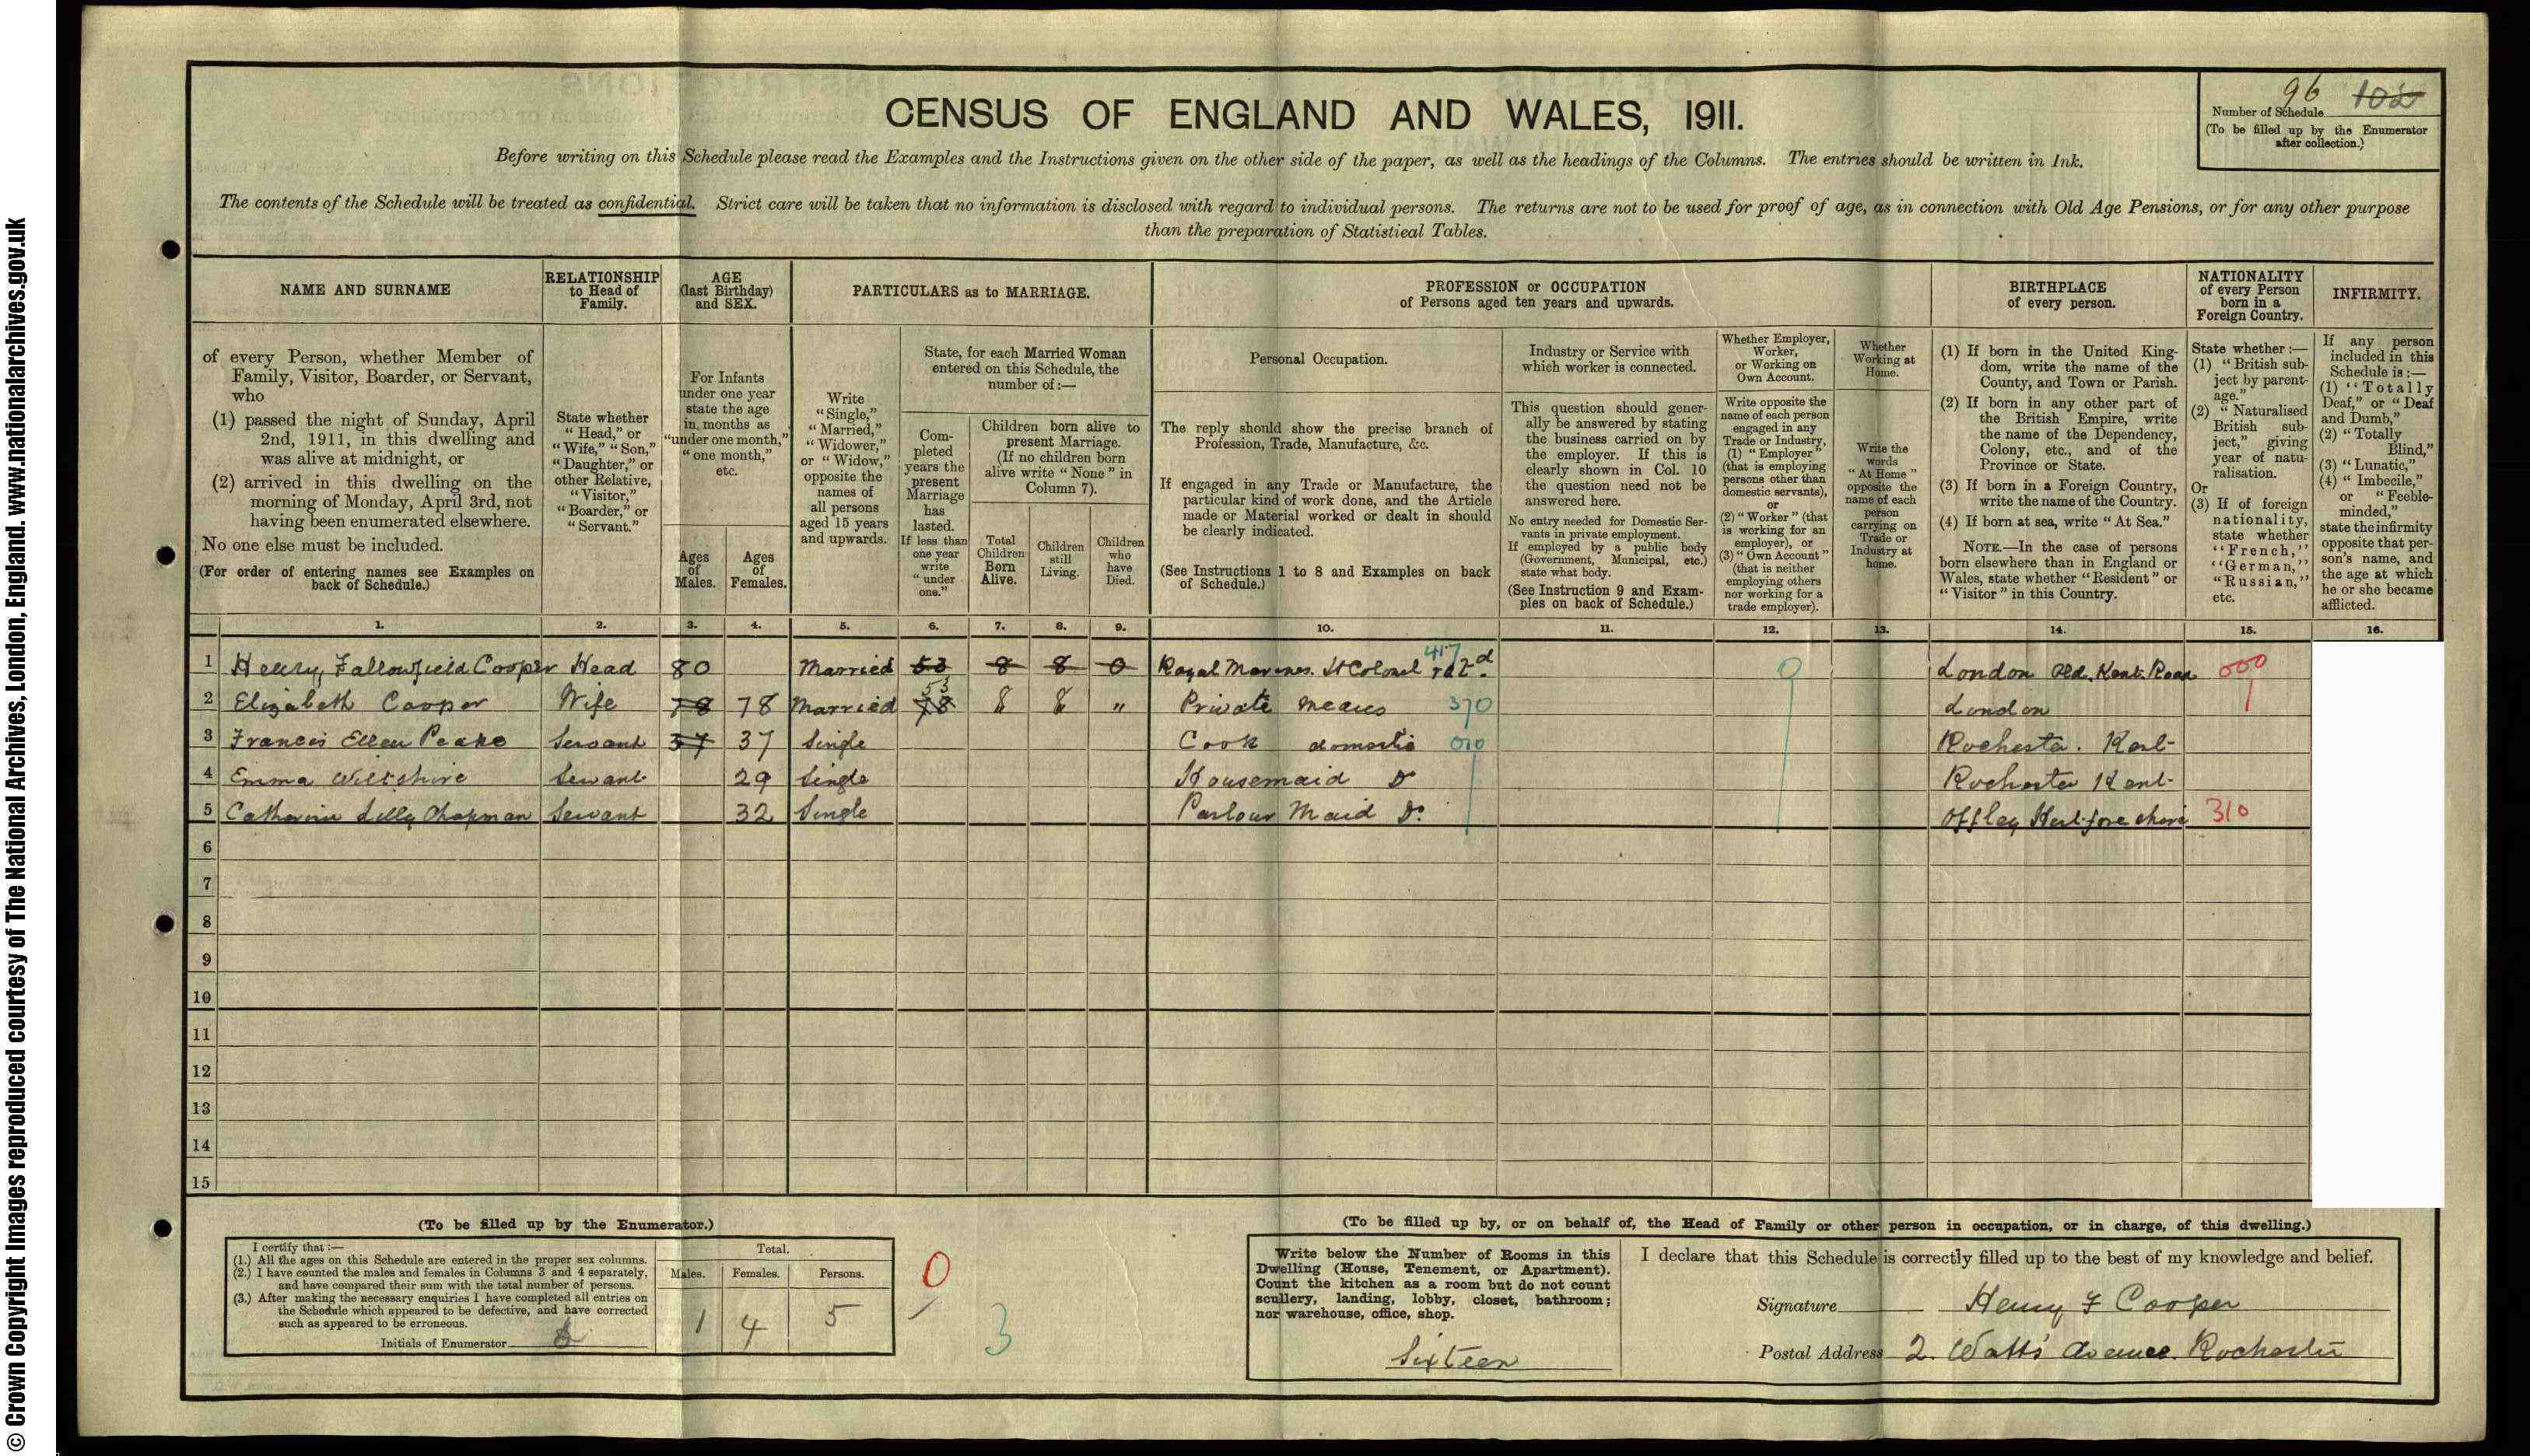 © Crown Copyright Images reproduced courtesy of The National Archives, London, England. www.nationalarchives.gov.uk
96 102
Number of Schedule
(To be filled up by the Enumerator
after collection.)
CENSUS OF ENGLAND AND WALES, 1911.
Before writing on this Schedule please read the Examples and the Instructions given on the other side of the paper, as well as the headings of the Columns. The entries should be written in Ink.
The contents of the Schedule will be treated as confidential. Strict care will be taken that no information is disclosed with regard to individual persons. The returns are not to be used for proof of age, as in connection with Old Age Pensions, or for any other purpose
than the preparation of Statistical Tables.
NAME AND SURNAME
of every Person, whether Member of
Family, Visitor, Boarder, or Servant,
who
(1) passed the night of Sunday, April
2nd, 1911, in this dwelling and
was alive at midnight, or
(2) arrived in this dwelling on the
morning of Monday, April 3rd, not
having been enumerated elsewhere.
No one else must be included.
(For order of entering names see Examples on
back of Schedule.)
RELATIONSHIP
to Head of
Family.
State whether
"Head," or
"Wife," "Son,"
"Daughter," or
other Relative,
"Visitor,"
"Boarder," or
"Servant."
AGE
(last Birthday)
and SEX.
For Infants
under one year
state the age
in months as
"under one month,"
"one month,"
etc.
Ages
of
Males.
Ages
of
Females.
PARTICULARS as to MARRIAGE.
Write
"Single,"
"Married,"
"Widower,"
or "Widow,"
opposite the
names of
all persons
aged 15 years
and upwards.
State, for each Married Woman
entered on this Schedule, the
number of:—
Com-
pleted
years the
present
Marriage
has
lasted.
If less than
one year
write
"under
one."
Children born alive to
present Marriage.
(If no children born
alive write "None" in
Column 7).
Total
Children
Born
Alive.
Children
still
Living.
Children
who
have
Died.
PROFESSION or OCCUPATION
of Persons aged ten years and upwards.
Personal Occupation.
The reply should show the precise branch of
Profession, Trade, Manufacture, &c.
If engaged in any Trade or Manufacture, the
particular kind of work done, and the Article
made or Material worked or dealt in should
be clearly indicated.
(See Instructions 1 to 8 and Examples on back
of Schedule.)
Industry or Service with
which worker is connected.
This question should gener-
ally be answered by stating
the business carried on by
the employer. If this is
clearly shown in Col. 10
the question need not be
answered here.
No entry needed for Domestic Ser-
vants in private employment.
If employed by a public body
(Government, Municipal, etc.)
state what body.
(See Instruction 9 and Exam-
ples on back of Schedule.)
Whether Employer,
Worker,
or Working on
Own Account.
Write opposite the
name of each person
engaged in any
Trade or Industry,
(1) "Employer"
(that is employing
persons other than
domestic servants),
or
(2) "Worker" (that
is working for an
employer), or
(3) "Own Account"
(that is neither
employing others
nor working for a
trade employer).
Whether
Working at
Home.
Write the
words
"At Home"
opposite the
name of each
person
carrying on
Trade or
Industry at
home.
BIRTHPLACE
of every person.
(1) If born in the United King-
dom, write the name of the
County, and Town or Parish.
(2) If born in any other part of
the British Empire, write
the name of the Dependency,
Colony, etc., and of the
Province or State.
(3) If born in a Foreign Country,
write the name of the Country.
(4) If born at sea, write "At Sea."
NOTE.—In the case of persons
born elsewhere than in England or
Wales, state whether "Resident" or
"Visitor" in this Country.
NATIONALITY
of every Person
born in a
Foreign Country.
State whether:—
(1) "British sub-
ject by parent-
age."
(2) "Naturalised
British sub-
ject," giving
year of natu-
ralisation.
Or
(3) If of foreign
nationality,
state whether
"French,"
"German,"
"Russian,"
etc.
INFIRMITY.
If any person
included in this
Schedule is:—
(1) "Totally
Deaf," or "Deaf
and Dumb,"
(2) "Totally
Blind,"
(3) "Lunatic,"
(4) "Imbecile,"
or "Feeble-
minded,"
state the infirmity
opposite that per-
son's name, and
the age at which
he or she became
afflicted.
1. 2. 3. 4. 5. 6. 7. 8. 9. 10. 11. 12. 13. 14. 15. 16.
1 Henry Fallowfield Cooper Head 80 Married 53 8 8 0 Royal Marines. Lt Colonel 417 retd. 0 London Old Kent Road 000
2 Elizabeth Cooper Wife 78 78 Married 53 78 8 8 " Private means 370 London
3 Francis Ellen Peake Servant 37 37 Single Cook domestic 010 Rochester. Kent
4 Emma Wiltshire Servant 29 Single Housemaid Do Rochester Kent
5 Catharine Lilly Chapman Servant 32 Single Parlour Maid Do. Offley Hertfordshire 310
6
7
8
9
10
11
12
13
14
15
(To be filled up by the Enumerator.)
I certify that:—
(1.) All the ages on this Schedule are entered in the proper sex columns.
(2.) I have counted the males and females in Columns 3 and 4 separately,
and have compared their sum with the total number of persons.
(3.) After making the necessary enquiries I have completed all entries on
the Schedule which appeared to be defective, and have corrected
such as appeared to be erroneous.
Initials of Enumerator
Total.
Males. Females. Persons.
1 4 5
0
3
(To be filled up by, or on behalf of, the Head of Family or other person in occupation, or in charge, of this dwelling.)
Write below the Number of Rooms in this
Dwelling (House, Tenement, or Apartment).
Count the kitchen as a room but do not count
scullery, landing, lobby, closet, bathroom;
nor warehouse, office, shop.
Sixteen
I declare that this Schedule is correctly filled up to the best of my knowledge and belief.
Signature Henry F Cooper
Postal Address 2. Watts' Avenue. Rochester